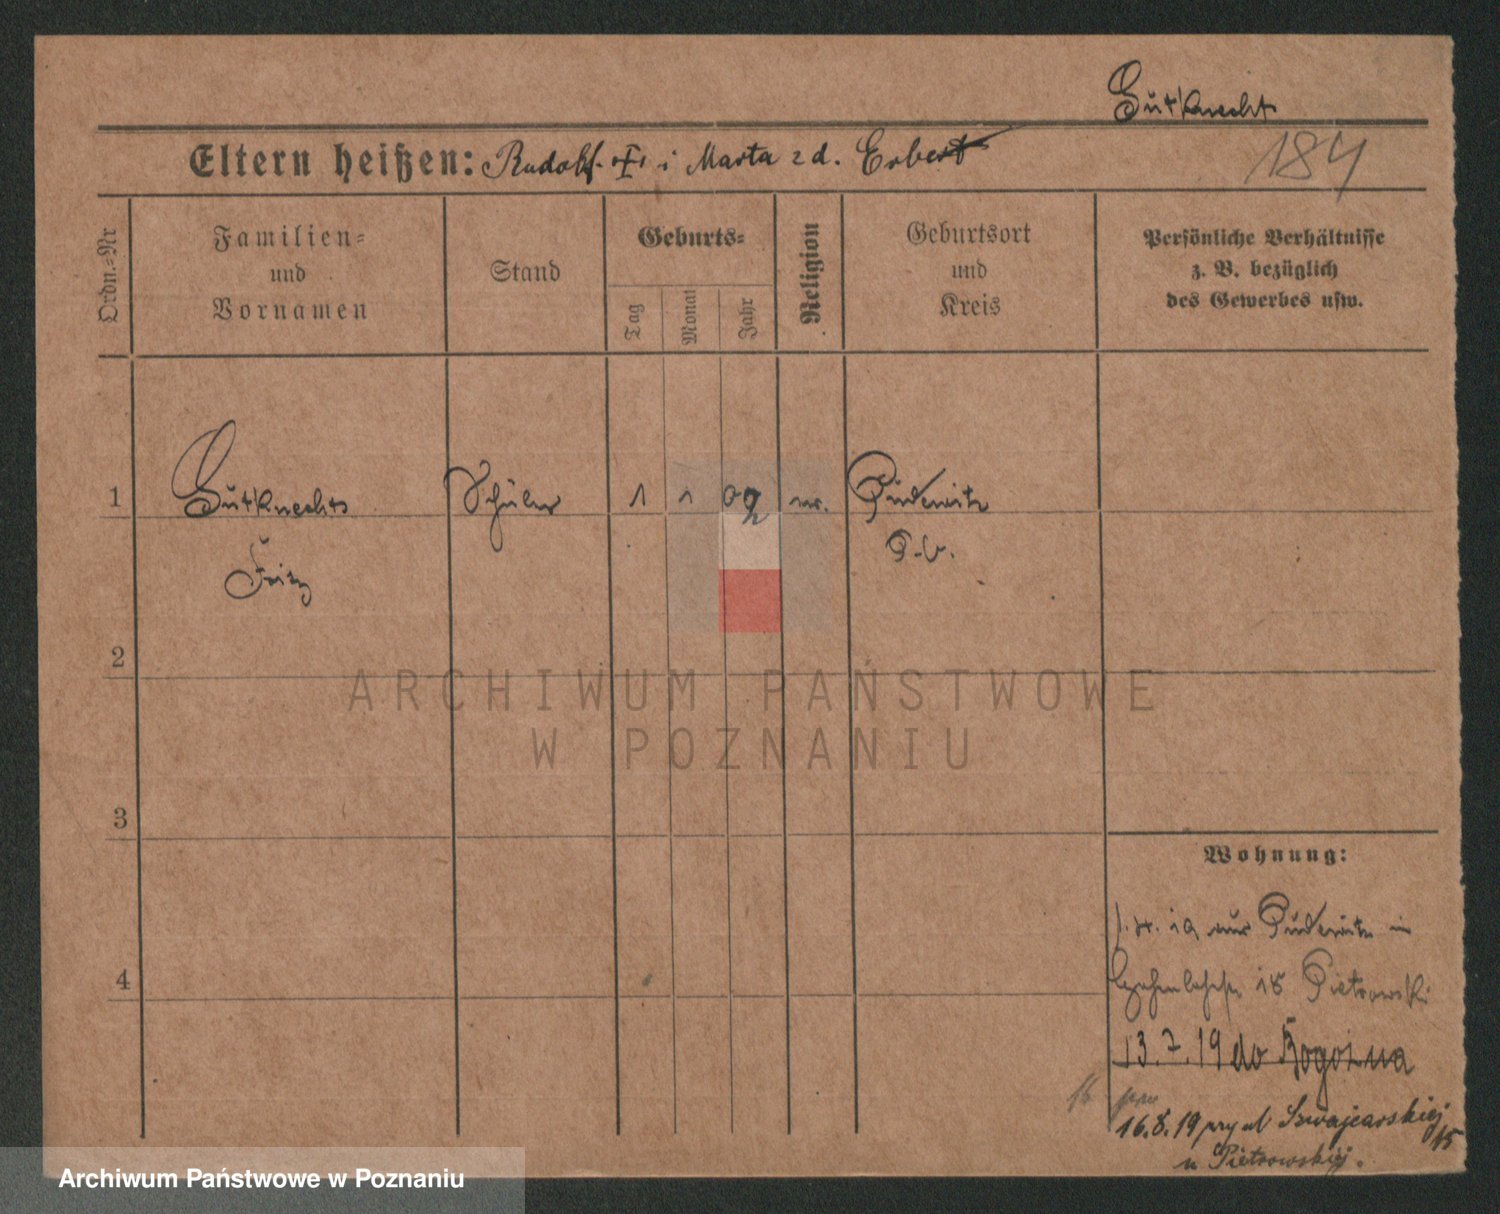 Gutknecht
Eltern heißen: Rudolf i Marta z d. Erbert
184
Ordn.-Nr
Familien- und Vornamen
Stand
Geburts-
Tag
Monat
Jahr
Religion
Geburtsort und Kreis
Persönliche Verhältnisse
z. B. bezüglich
des Gewerbes usw.
1 Gutknecht Schüler 1 1 02 Pudewitz
Fritz
2
ARCHIWUM PAŃSTWOWE
W POZNANIU
3
Wohnung:
Pudewitz in
4
18 Pietrowski
13.7.19 do Rogozna
16.8.19 przy ul Szwajcarskiej 15
u Pietrowskiej.
Archiwum Państwowe w Poznaniu